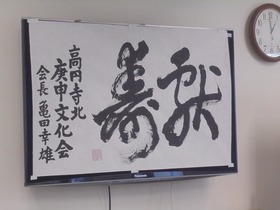 献寿
高円寺北
庚申文化会
会長 亀田幸雄
Panasonic